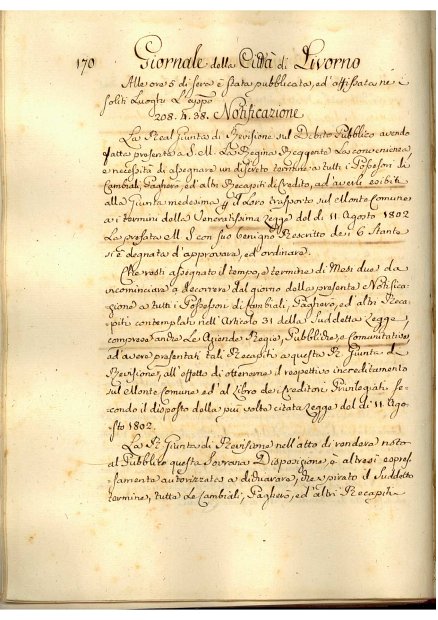 170 Giornale della Città di Livorno
Alle ore 5 di sera è stata pubblicata, ed'affissata ne i
soliti Luoghi L'
208. 4. 38. Notificazione
La Real Giunta di Revisione sul Debito Pubblico avendo
fatte presenti a S. M. La Regina Reggente La convenienza,
e necessità di assegnare un discreto termine a tutti i Possessori di
Cambiali, Pagherò, ed'altri Recapiti di Credito, ad'averli esibiti
alla Giunta medesima p il Loro trasporto sul Monte Comune
a i termini della Veneratissima Legge del dì 11. Agosto 1802
La prefata M. S. con suo benigno Rescritto de i 6 Stante
si è degnata d'approvare, ed'ordinare.
Che resti assegnato il tempo, e termine di Mesi due da
incominciare a decorrere dal giorno della presente Notifica-
zione a tutti i Possessori di Cambiali, Pagherò, ed'altri Reca-
piti contemplati nell'Articolo 31 della Suddetta Legge,
comprese anche Le Aziende Regie, Pubbliche, e Comunitative
ad'avere presentati tali Recapiti a questa R. Giunta di
Revisione, all'effetto di ottenerne il respettivo incredimento
sul Monte Comune ed'al Libro de i Creditori Privilegiati se-
condo il disposto della più volte citata Legge del dì 11. Ago-
sto 1802.
La R. Giunta di Revisione nell'atto di rendere nota
al Pubblico questa Sovrana Disposizione, è altresì espres-
samente autorizzata a dichiarare, che spirato il Suddetto
termine, tutte Le Cambiali, Pagherò, ed'altri Recapiti